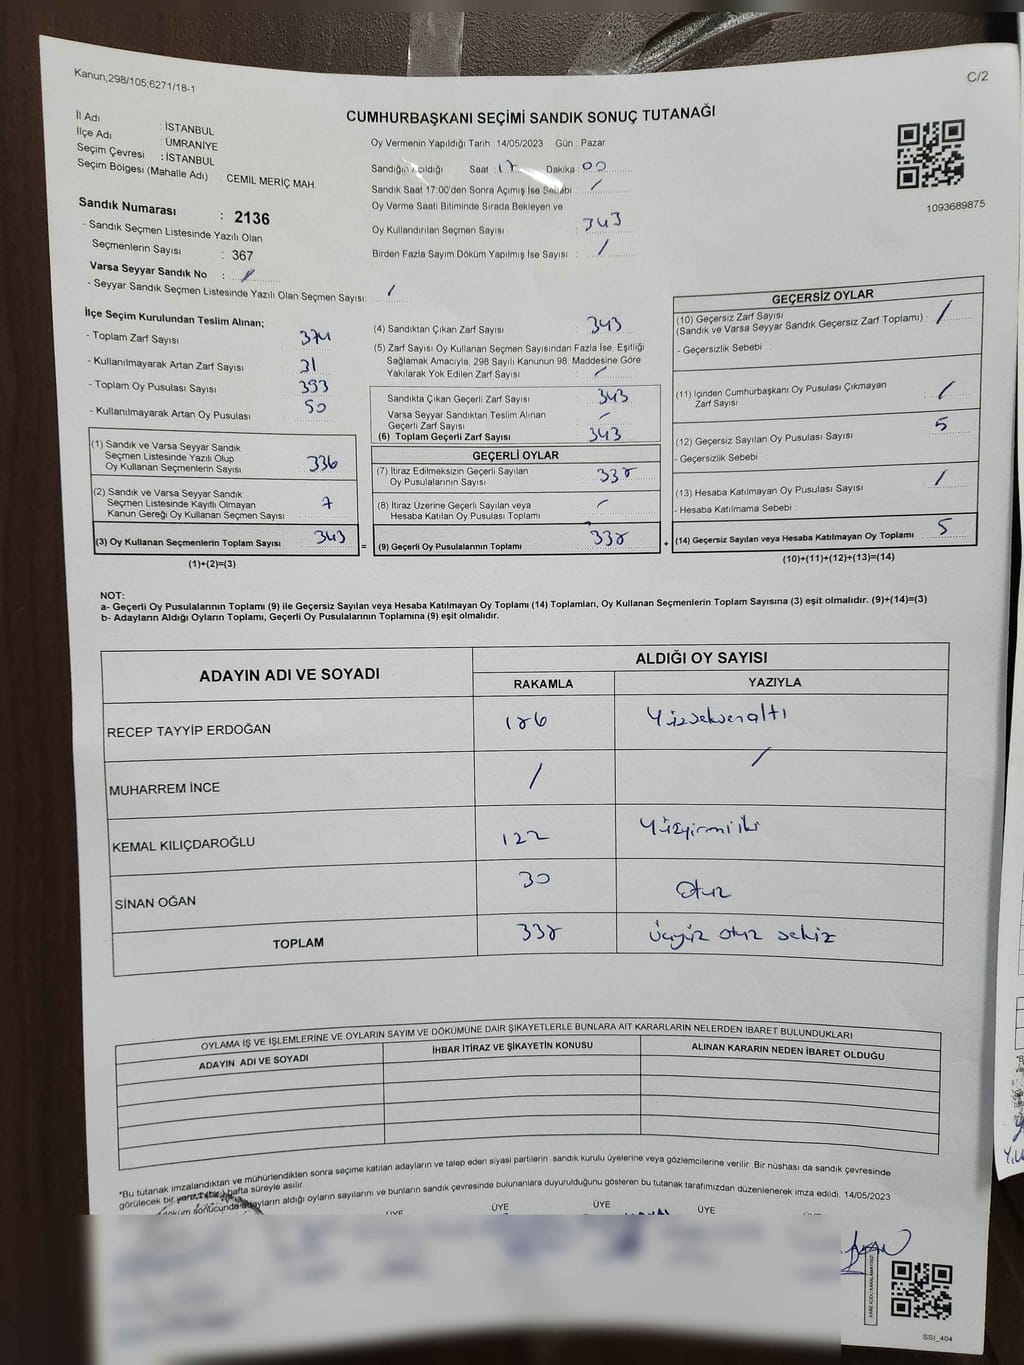 Kanun;298/105;6271/18-1
C/2
CUMHURBAŞKANI SEÇİMİ SANDIK SONUÇ TUTANAĞI
İl Adı : İSTANBUL
İlçe Adı : ÜMRANİYE
Seçim Çevresi : İSTANBUL
Seçim Bölgesi (Mahalle Adı) : CEMİL MERİÇ MAH.
Sandık Numarası : 2136
- Sandık Seçmen Listesinde Yazılı Olan
Seçmenlerin Sayısı : 367
Varsa Seyyar Sandık No : /
- Seyyar Sandık Seçmen Listesinde Yazılı Olan Seçmen Sayısı: /
Oy Vermenin Yapıldığı Tarih : 14/05/2023 Gün : Pazar
Sandığın Açıldığı Saat : 17 Dakika : 00
Sandık Saat 17:00'den Sonra Açımış İse Sebebi : /
Oy Verme Saati Bitiminde Sırada Bekleyen ve
Oy Kullandırılan Seçmen Sayısı : 343
Birden Fazla Sayım Döküm Yapılmış İse Sayısı : /
1093689875
İlçe Seçim Kurulundan Teslim Alınan;
- Toplam Zarf Sayısı : 374
- Kullanılmayarak Artan Zarf Sayısı : 31
- Toplam Oy Pusulası Sayısı : 393
- Kullanılmayarak Artan Oy Pusulası : 50
(1) Sandık ve Varsa Seyyar Sandık
Seçmen Listesinde Yazılı Olup
Oy Kullanan Seçmenlerin Sayısı : 336
(2) Sandık ve Varsa Seyyar Sandık
Seçmen Listesinde Kayıtlı Olmayan
Kanun Gereği Oy Kullanan Seçmen Sayısı : 7
(3) Oy Kullanan Seçmenlerin Toplam Sayısı : 343
(1)+(2)=(3)
=
(4) Sandıktan Çıkan Zarf Sayısı : 343
(5) Zarf Sayısı Oy Kullanan Seçmen Sayısından Fazla İse, Eşitliği
Sağlamak Amacıyla, 298 Sayılı Kanunun 98. Maddesine Göre
Yakılarak Yok Edilen Zarf Sayısı : /
Sandıkta Çıkan Geçerli Zarf Sayısı : 343
Varsa Seyyar Sandıktan Teslim Alınan
Geçerli Zarf Sayısı : /
(6) Toplam Geçerli Zarf Sayısı : 343
GEÇERLİ OYLAR
(7) İtiraz Edilmeksizin Geçerli Sayılan
Oy Pusulalarının Sayısı : 338
(8) İtiraz Üzerine Geçerli Sayılan veya
Hesaba Katılan Oy Pusulası Toplamı : /
(9) Geçerli Oy Pusulalarının Toplamı : 338
+
GEÇERSİZ OYLAR
(10) Geçersiz Zarf Sayısı
(Sandık ve Varsa Seyyar Sandık Geçersiz Zarf Toplamı) : /
- Geçersizlik Sebebi :
(11) İçinden Cumhurbaşkanı Oy Pusulası Çıkmayan
Zarf Sayısı : /
(12) Geçersiz Sayılan Oy Pusulası Sayısı : 5
- Geçersizlik Sebebi :
(13) Hesaba Katılmayan Oy Pusulası Sayısı : /
- Hesaba Katılmama Sebebi :
(14) Geçersiz Sayılan veya Hesaba Katılmayan Oy Toplamı : 5
(10)+(11)+(12)+(13)=(14)
NOT:
a- Geçerli Oy Pusulalarının Toplamı (9) ile Geçersiz Sayılan veya Hesaba Katılmayan Oy Toplamı (14) Toplamları, Oy Kullanan Seçmenlerin Toplam Sayısına (3) eşit olmalıdır. (9)+(14)=(3)
b- Adayların Aldığı Oyların Toplamı, Geçerli Oy Pusulalarının Toplamına (9) eşit olmalıdır.
ADAYIN ADI VE SOYADI
ALDIĞI OY SAYISI
RAKAMLA YAZIYLA
RECEP TAYYİP ERDOĞAN 186 Yüzseksenaltı
MUHARREM İNCE / /
KEMAL KILIÇDAROĞLU 122 Yüzyirmiiki
SİNAN OĞAN 30 Otuz
TOPLAM 338 üçyüz otuz sekiz
OYLAMA İŞ VE İŞLEMLERİNE VE OYLARIN SAYIM VE DÖKÜMÜNE DAİR ŞİKAYETLERLE BUNLARA AİT KARARLARIN NELERDEN İBARET BULUNDUKLARI
ADAYIN ADI VE SOYADI İHBAR İTİRAZ VE ŞİKAYETİN KONUSU ALINAN KARARIN NEDEN İBARET OLDUĞU
*Bu tutanak imzalandıktan ve mühürlendikten sonra seçime katılan adayların ve talep eden siyasi partilerin sandık kurulu üyelerine veya gözlemcilerine verilir. Bir nüshası da sandık çevresinde
görülecek bir yere 1 (bir) hafta süreyle asılır.
döküm sonucunda adayların aldığı oyların sayılarını ve bunların sandık çevresinde bulunanlara duyurulduğunu gösteren bu tutanak tarafımızdan düzenlenerek imza edildi. 14/05/2023
ÜYE ÜYE ÜYE ÜYE
SSI_404